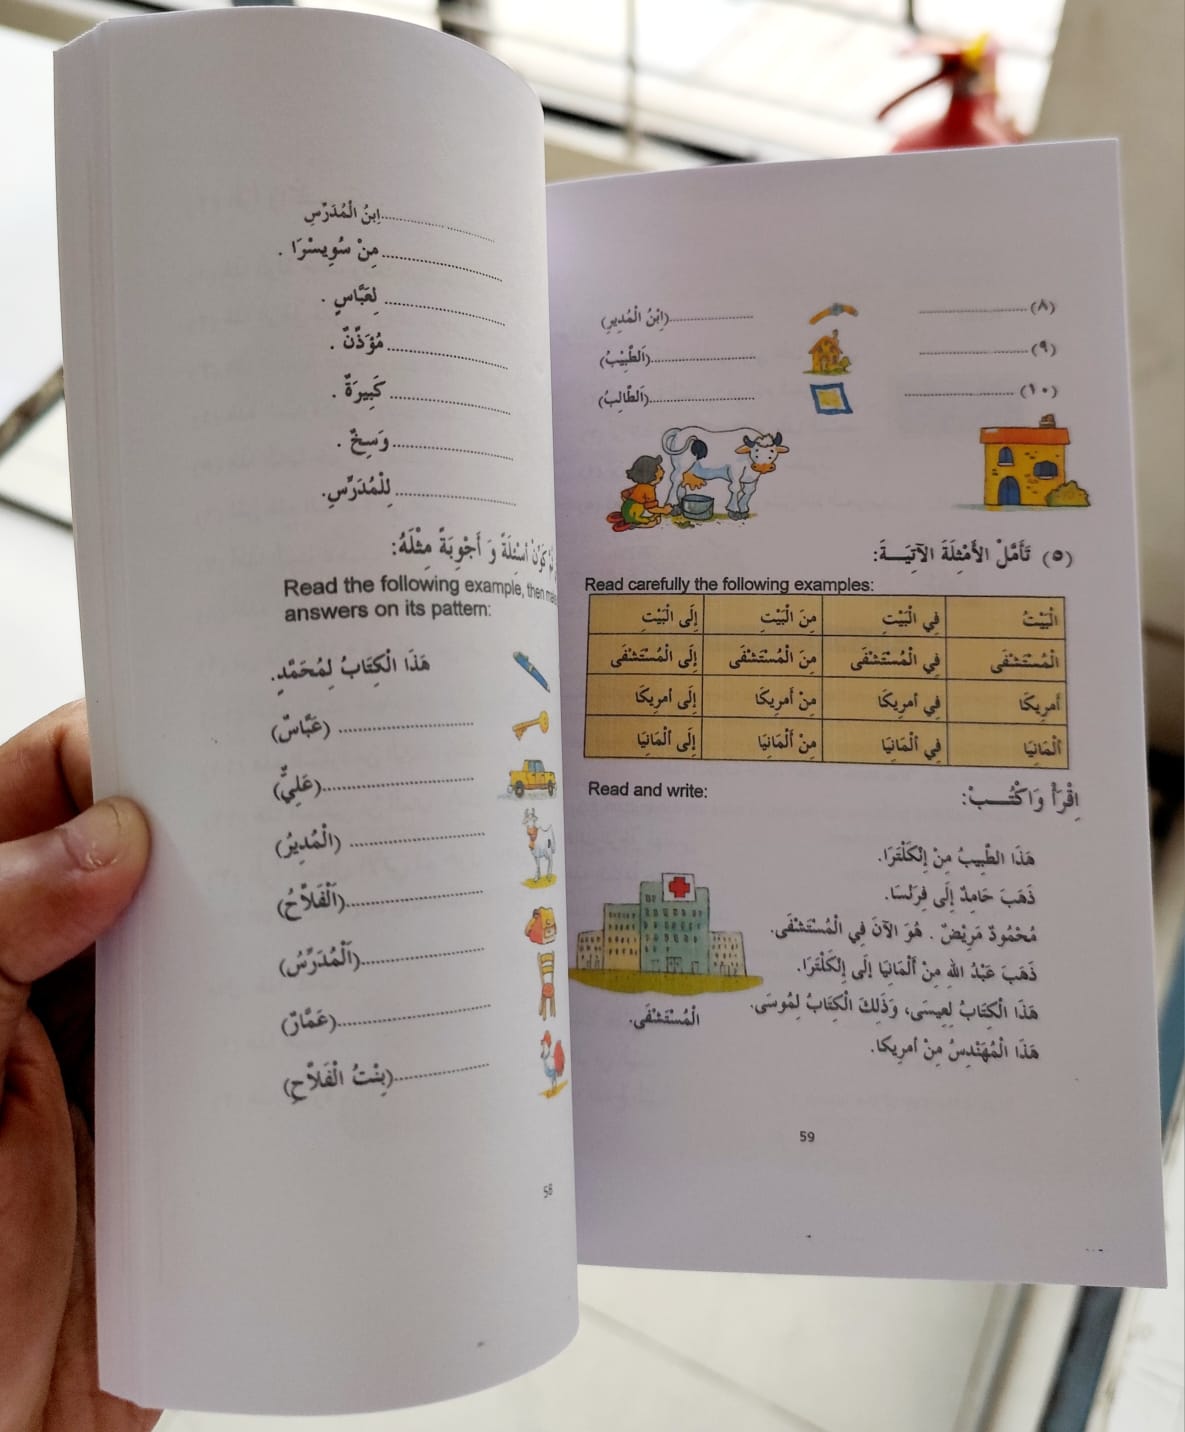 ................ابنُ الْمُدَرِّسِ
................مِنْ سُوِيسْرَا .
................لِعَبَّاسٍ .
................مُؤَذِّنٌ .
................كَبِيرَةٌ .
................وَسِخٌ .
................لِلْمُدَرِّسِ.
كَوِّنْ أَسْئِلَةً وَ أَجْوِبَةً مِثْلَهُ:
Read the following example, then
answers on its pattern:
هَذَا الْكِتَابُ لِمُحَمَّدٍ.
................ (عَبَّاسٌ)
................(عَلِيٌّ)
................ (الْمُدِيرُ)
................(اَلْفَلاَّحُ)
................(اَلْمُدَرِّسُ)
................(عَمَّارٌ)
................(بِنْتُ الْفَلاَّحِ)
58
(٨) ................ ................(اِبْنُ الْمُدِيرِ)
(٩) ................ ................(اَلطَّبِيْبُ)
(١٠) ................ ................(اَلطَّالِبُ)
(٥) تَأَمَّلْ الأَمْثِلَةَ الآتِيَـــةَ:
Read carefully the following examples:
الْبَيْتُ فِي الْبَيْتِ مِنَ الْبَيْتِ إِلَى الْبَيْتِ
الْمُسْتَشْفَى فِي الْمُسْتَشْفَى مِنَ الْمُسْتَشْفَى إِلَى الْمُسْتَشْفَى
أَمرِيكَا فِي أمرِيكَا مِنْ أمرِيكَا إِلَى أمرِيكَا
أَلْمَانِيَا فِي أَلْمَانِيَا مِنْ أَلْمَانِيَا إِلَى أَلْمَانِيَا
اِقْرَأْ وَاكْتُـــبْ:
Read and write:
هَذَا الطَّبِيبُ مِنْ إِنْكَلْتَرَا.
ذَهَبَ حَامِدٌ إِلَى فِرَنْسَا.
مُحْمُودٌ مَرِيْضٌ . هُوَ الآنَ فِي الْمُسْتَشْفَى.
ذَهَبَ عَبْدُ اللهِ مِنْ أَلْمَانِيَا إِلَى إِنْكَلْتَرَا.
هَذَا الْكِتَابُ لِعِيسَى، وَذَلِكَ الْكِتَابُ لِمُوسَى.
هَذَا الْمُهَنْدِسُ مِنْ أمرِيكَا.
الْمُسْتَشْفَى.
59